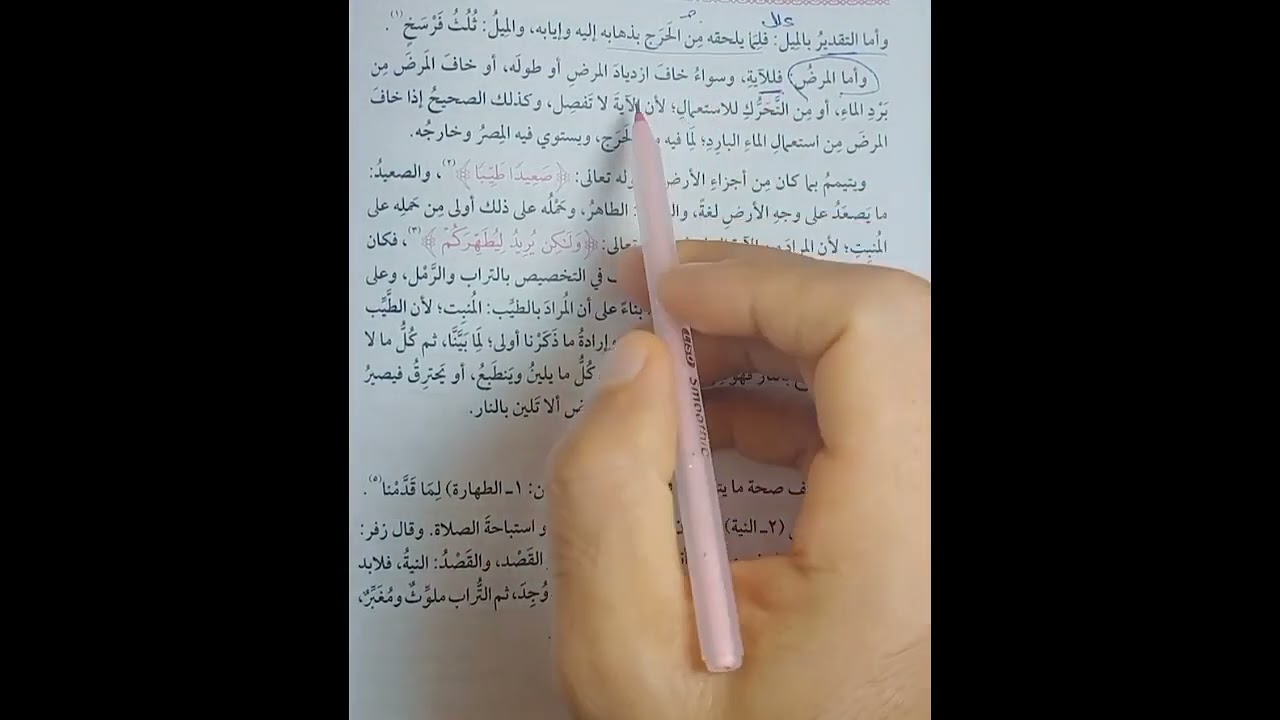 علل
وأما التقديرُ بالمِيل: فلِمَا يلحقه مِن الحَرَج بذهابه إليه وإيابه، والمِيلُ: ثُلُثُ فَرْسَخٍ(١).
وأما المرضُ: فللآيةِ، وسواءُ خافَ ازديادَ المرضِ أو طولَه، أو خافَ المرضَ مِن
بَرْدِ الماءِ، أو مِن التَّحَرُّكِ للاستعمالِ؛ لأن الآيةَ لا تَفصِل، وكذلك الصحيحُ إذا خافَ
المرضَ مِن استعمالِ الماءِ البارِدِ؛ لِمَا فيه الحَرَج، ويستوي فيه المِصرُ وخارجُه.
ويتيممُ بما كان مِن أجزاءِ الأرض تعالى: ﴿صَعِيدًا طَيِّبًا﴾(٢)، والصعيدُ:
ما يَصعَدُ على وجهِ الأرضِ لغةً، الطاهرُ، وحَمْلُه على ذلك أولى مِن حَملِه على
المُنبِتِ؛ لأن المرادَ تعالى: ﴿وَلَٰكِن يُرِيدُ لِيُطَهِّرَكُمْ﴾(٣)، فكان
في التخصيص بالتراب والرَّمْل، وعلى
بناءً على أن المُرادَ بالطيِّب: المُنبِت؛ لأن الطَّيِّب
وإرادةُ ما ذَكَرْنا أولى؛ لِمَا بَيَّنَّا، ثم كُلُّ ما لا
كُلُّ ما يلينُ ويَنطَبِعُ، أو يَحترِقُ فيصيرُ
ألا تَلين بالنار.
صحة ما ١ـ الطهارة) لِمَا قَدَّمْنا(٥).
(٢ـ النية) استباحةَ الصلاة. وقال زفر:
القَصْد، والقَصْدُ: النيةُ، فلابد
وُجِدَ، ثم التُّراب ملوِّثٌ ومُغَبِّرٌ،